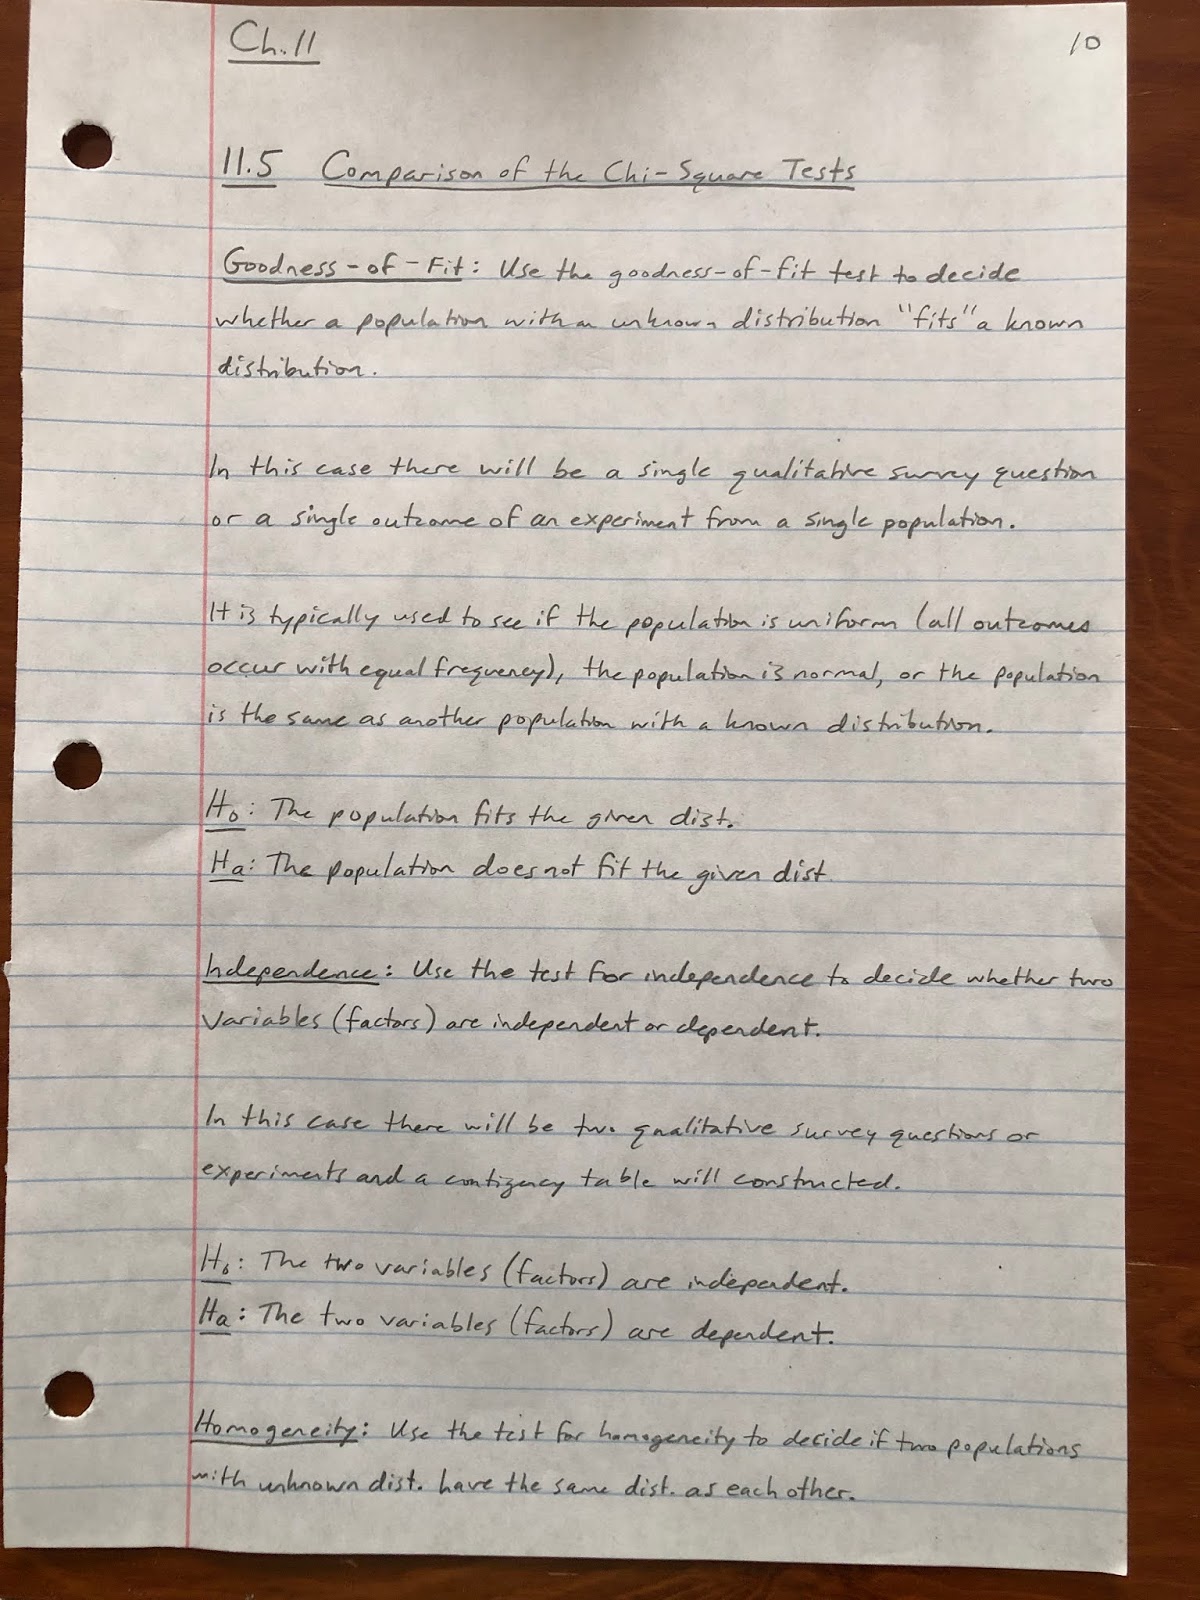 Ch.11
10
11.5 Comparison of the Chi-Square Tests
Goodness-of-Fit: Use the goodness-of-fit test to decide
whether a population with an unknown distribution "fits" a known
distribution.
In this case there will be a single qualitative survey question
or a single outcome of an experiment from a single population.
It is typically used to see if the population is uniform (all outcomes
occur with equal frequency), the population is normal, or the population
is the same as another population with a known distribution.
H₀: The population fits the given dist.
Ha: The population does not fit the given dist
Independence: Use the test for independence to decide whether two
variables (factors) are independent or dependent.
In this case there will be two qualitative survey questions or
experiments and a contigency table will constructed.
H₀: The two variables (factors) are independent.
Ha: The two variables (factors) are dependent.
Homogeneity: Use the test for homogeneity to decide if two populations
with unknown dist. have the same dist. as each other.